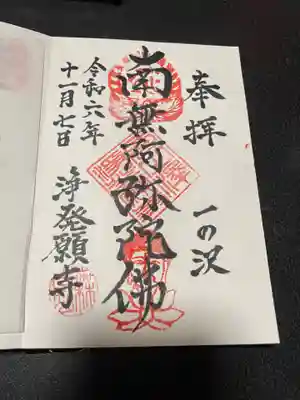 奉拝
一の沢
南無阿弥陀佛
浄発願寺
令和六年
十一月七日